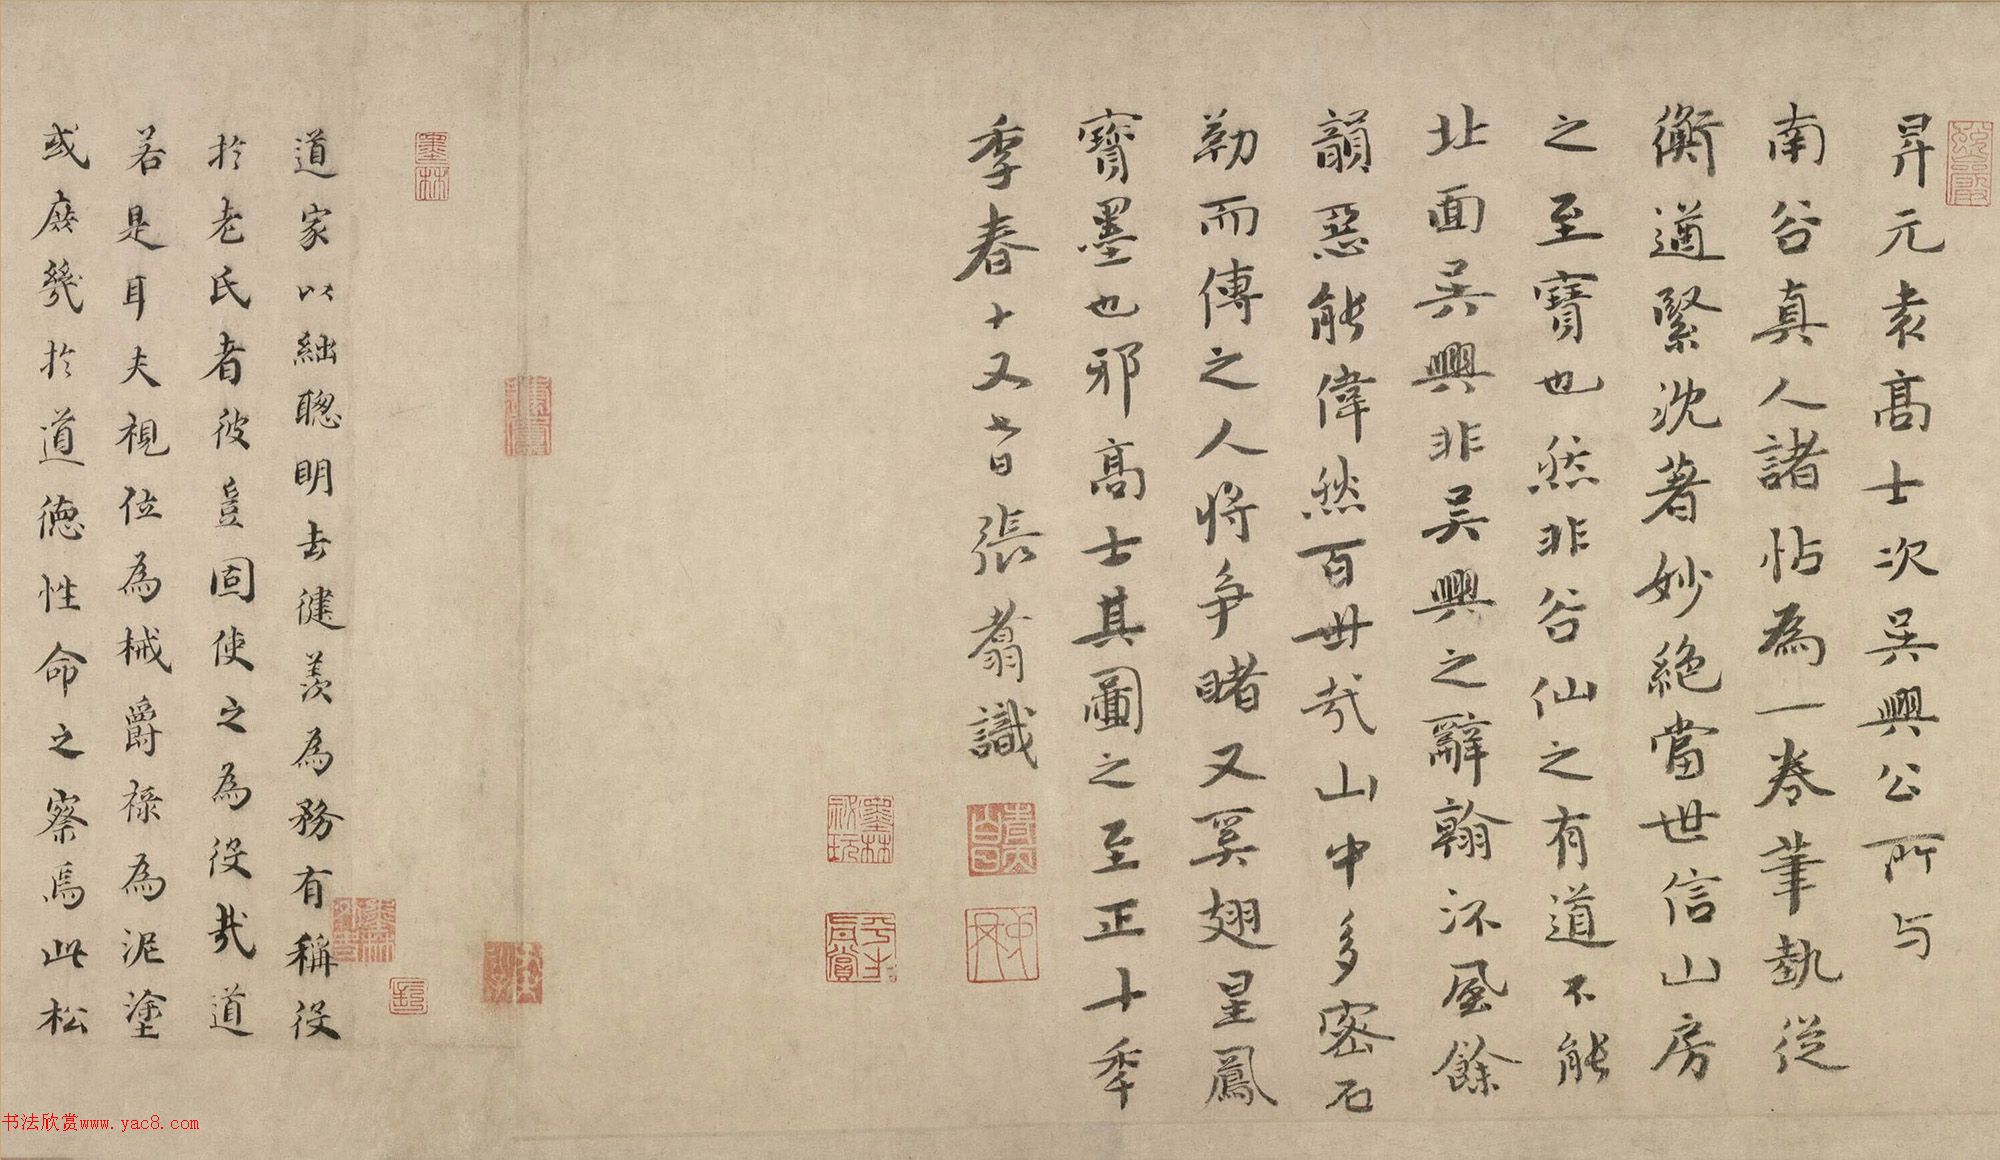 昇元袁髙士次吳興公所与
南谷真人諸帖為一卷筆執從
衡遒緊沈著妙絕當世信山房
之至寶也然非谷仙之有道不能
北面吳興非吳興之辭翰流風餘
韻惡能偉然百世哉山中多密石
勒而傳之人将争睹又奚翅星鳳
寶墨也邪髙士其圖之至正十年
季春十又七日張翥識
墨林
道家以絀聰明去健羨為務有稱役
於老氏者彼豈固使之為役哉道
若是耳夫視位為械爵祿為泥塗
或庶幾於道德性命之察焉此松
书法欣赏www.yac8.com